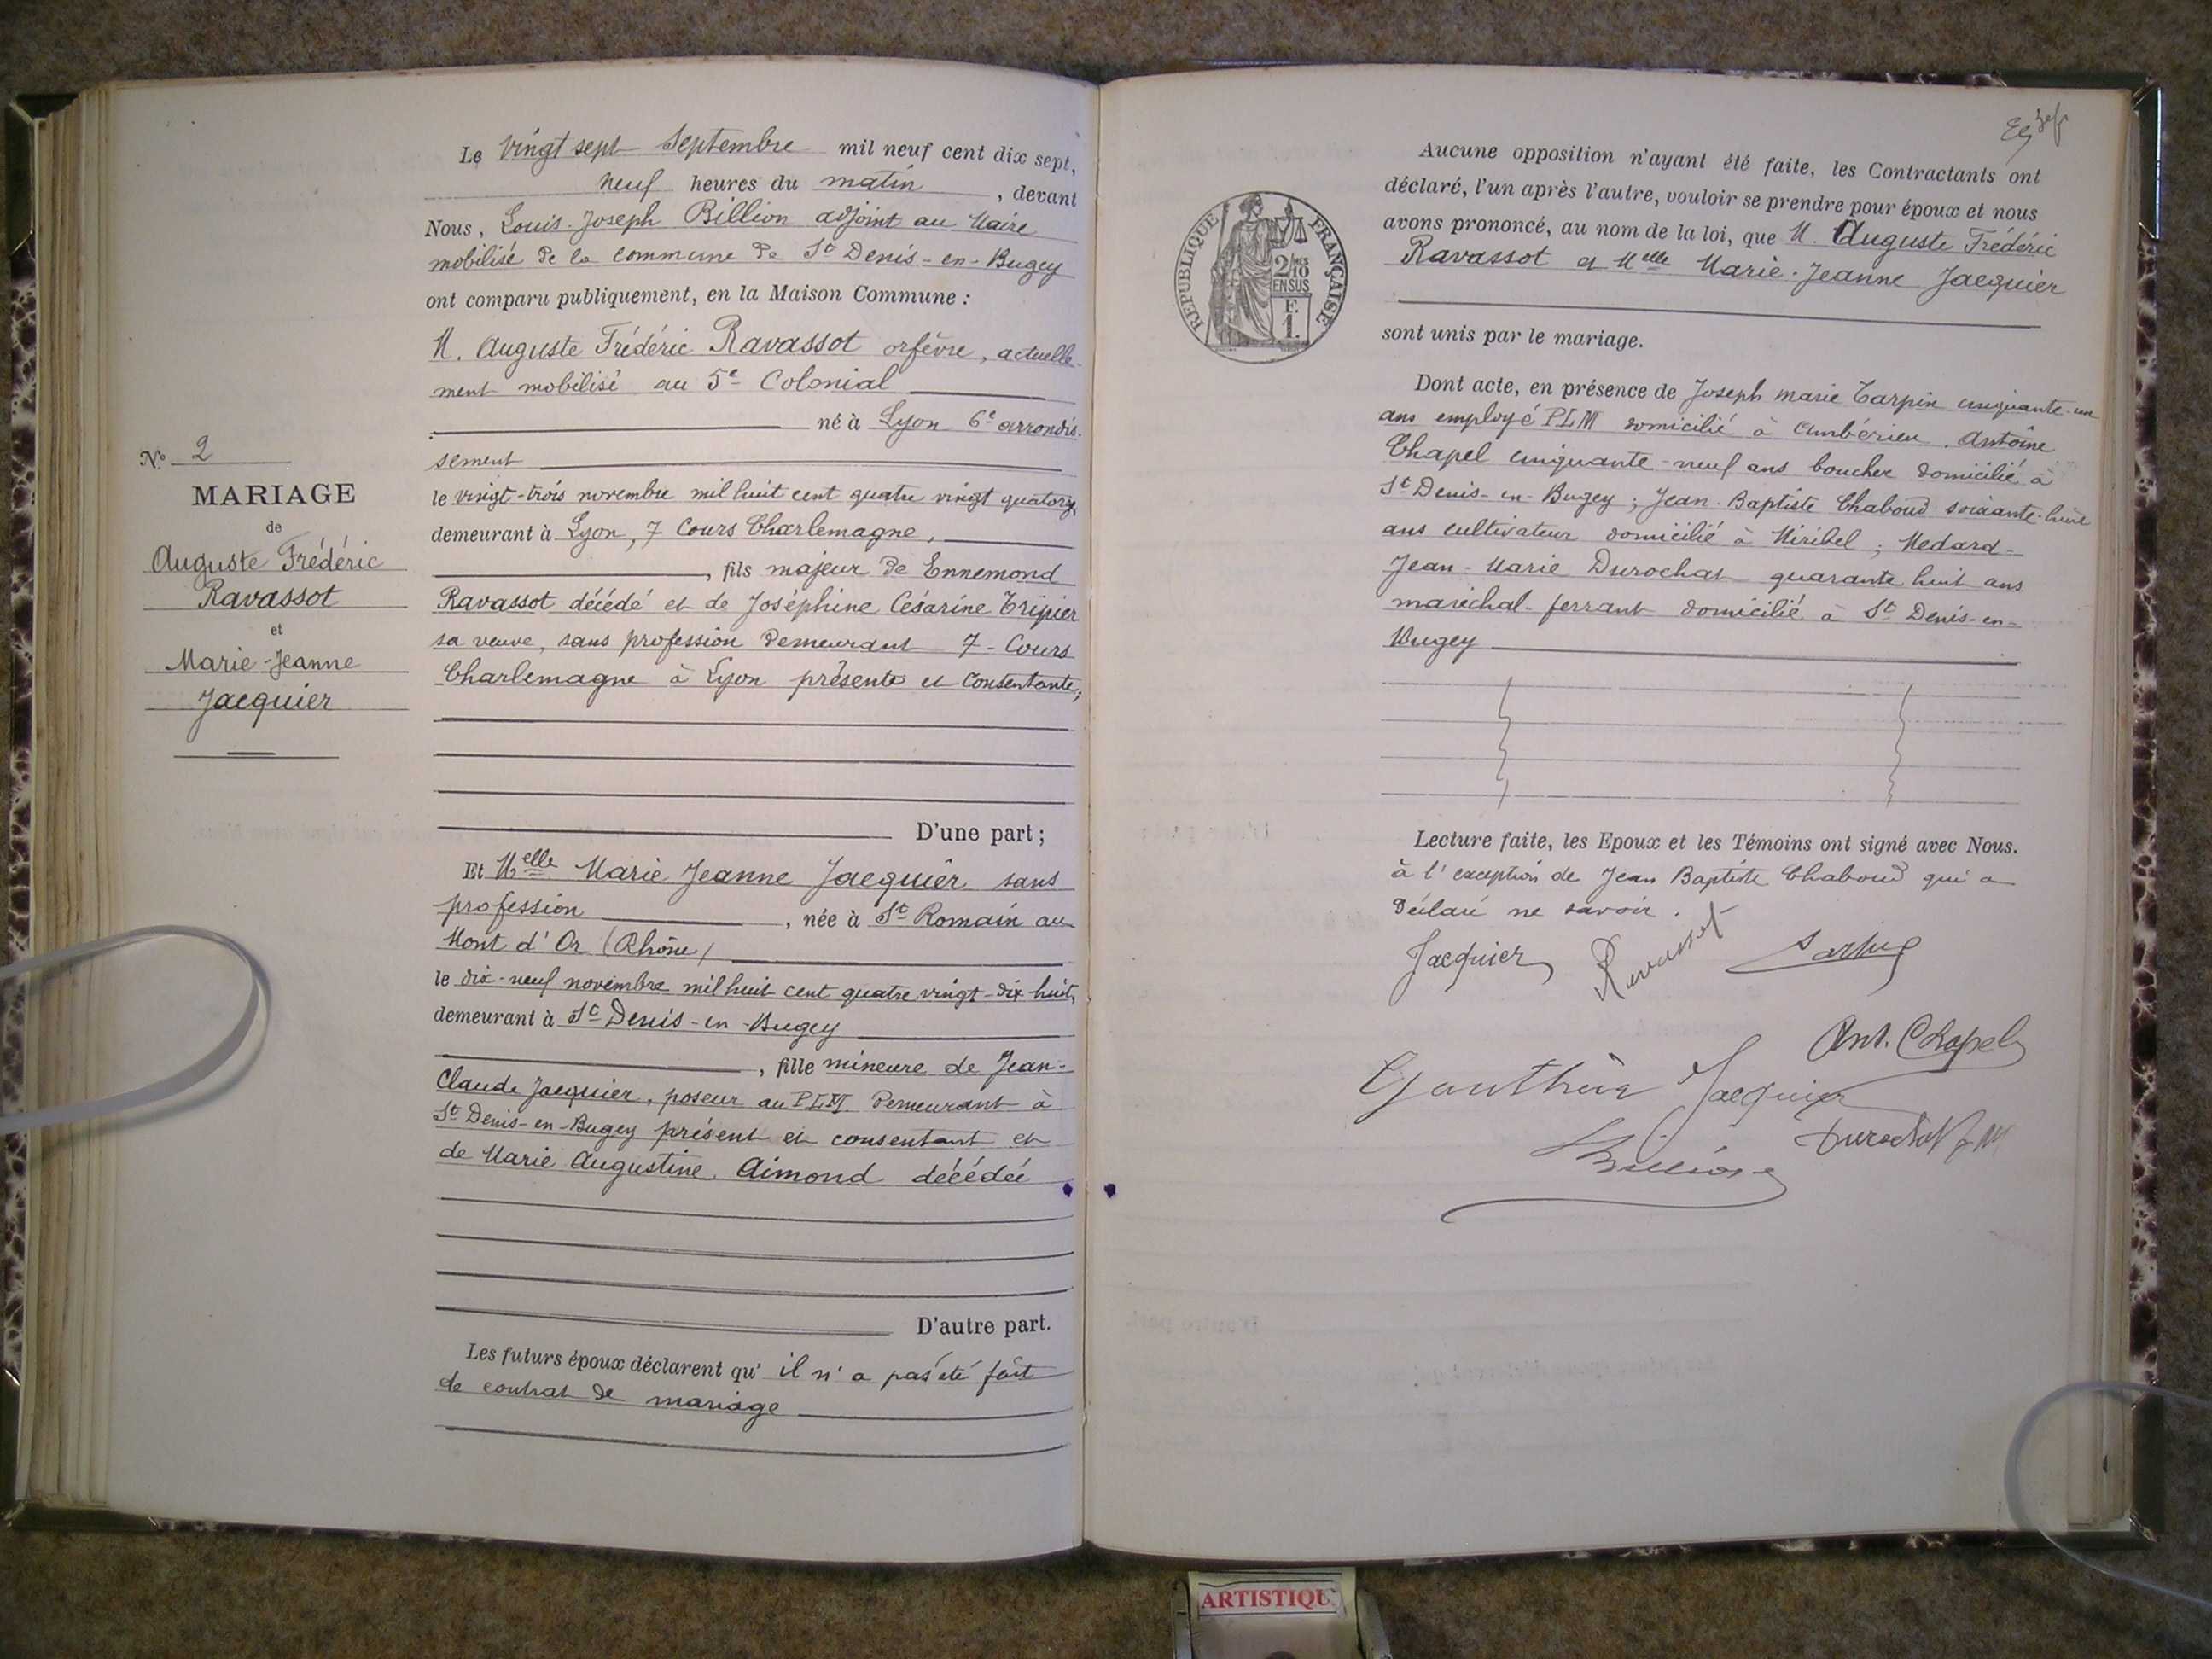 Le vingt sept Septembre mil neuf cent dix sept,
neuf heures du matin, devant
Nous, Louis-Joseph Billion adjoint au Maire
mobilisé de la commune de St Denis-en-Bugey
ont comparu publiquement, en la Maison Commune :
M. Auguste Frédéric Ravassot orfèvre, actuelle-
ment mobilisé au 5e Colonial
né à Lyon 6e arrondis-
sement
le vingt-trois novembre mil huit cent quatre vingt quatorze
demeurant à Lyon, 7 Cours Charlemagne,
, fils majeur de Ennemond
Ravassot décédé et de Joséphine Césarine Tripier
sa veuve, sans profession demeurant 7-Cours
Charlemagne à Lyon présente et consentante;
D'une part;
Et Melle Marie Jeanne Jacquier sans
profession, née à St Romain au
Mont d'Or (Rhône)
le dix-neuf novembre mil huit cent quatre vingt-dix huit,
demeurant à St Denis-en-Bugey
, fille mineure de Jean-
Claude Jacquier, poseur au PLM. demeurant à
St Denis-en-Bugey présent et consentant et
de Marie Augustine Aimond décédée
D'autre part.
Les futurs époux déclarent qu'il n'a pas été fait
de contrat de mariage
No 2
MARIAGE
de
Auguste Frédéric
Ravassot
et
Marie-Jeanne
Jacquier
Aucune opposition n'ayant été faite, les Contractants ont
déclaré, l'un après l'autre, vouloir se prendre pour époux et nous
avons prononcé, au nom de la loi, que M. Auguste Frédéric
Ravassot et Melle Marie-Jeanne Jacquier
sont unis par le mariage.
Dont acte, en présence de Joseph marie Tarpin cinquante-un
ans employé PLM domicilié à Ambérieu. Antoine
Chapel cinquante-neuf ans boucher domicilié à
St Denis-en-Bugey; Jean-Baptiste Chaboud soixante-huit
ans cultivateur domicilié à Miribel; Medard-
Jean-Marie Durochat quarante huit ans
maréchal-ferrant domicilié à St Denis-en-
Bugey
Lecture faite, les Epoux et les Témoins ont signé avec Nous.
à l'exception de Jean Baptiste Chaboud qui a
déclaré ne savoir.
Jacquier Ravassot
Ant. Chapel
Jacquier
Durochat J M
Billion
REPUBLIQUE FRANÇAISE
2/10
EN SUS
F.
1.
ARTISTIQU